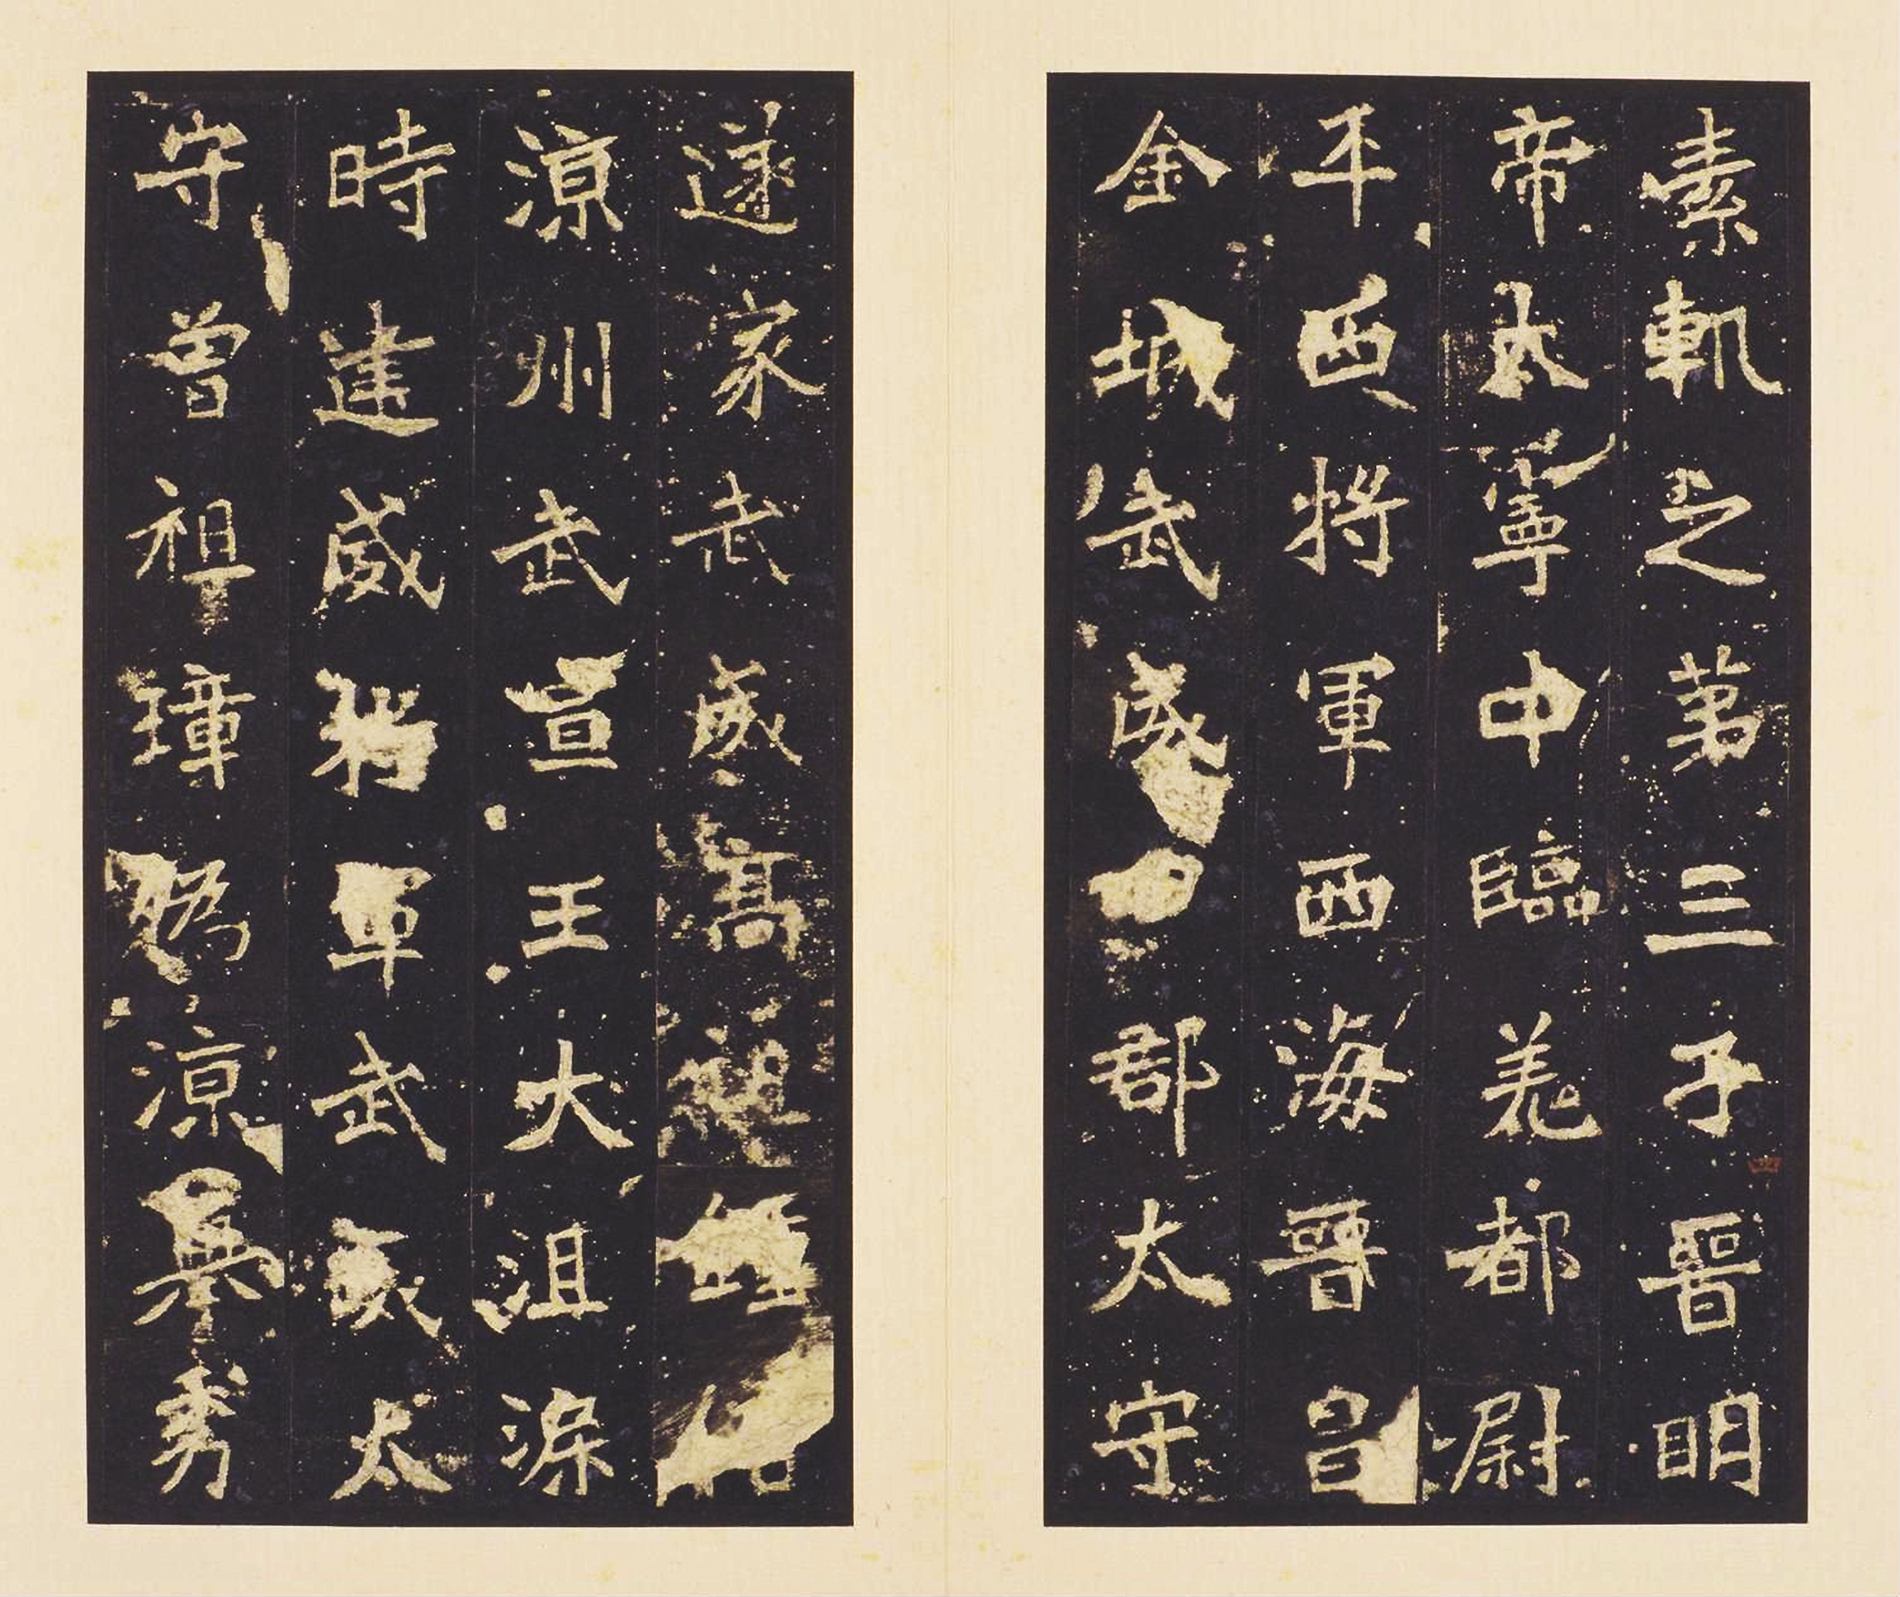 素軌之第三子晉明
帝太寧中臨羌都尉
平西將軍西海晉昌
金城武威四郡太守
遂家武威高祖鍾信
涼州武宣王大沮渠
時建威將軍武威太
守曾祖璋偽涼舉秀